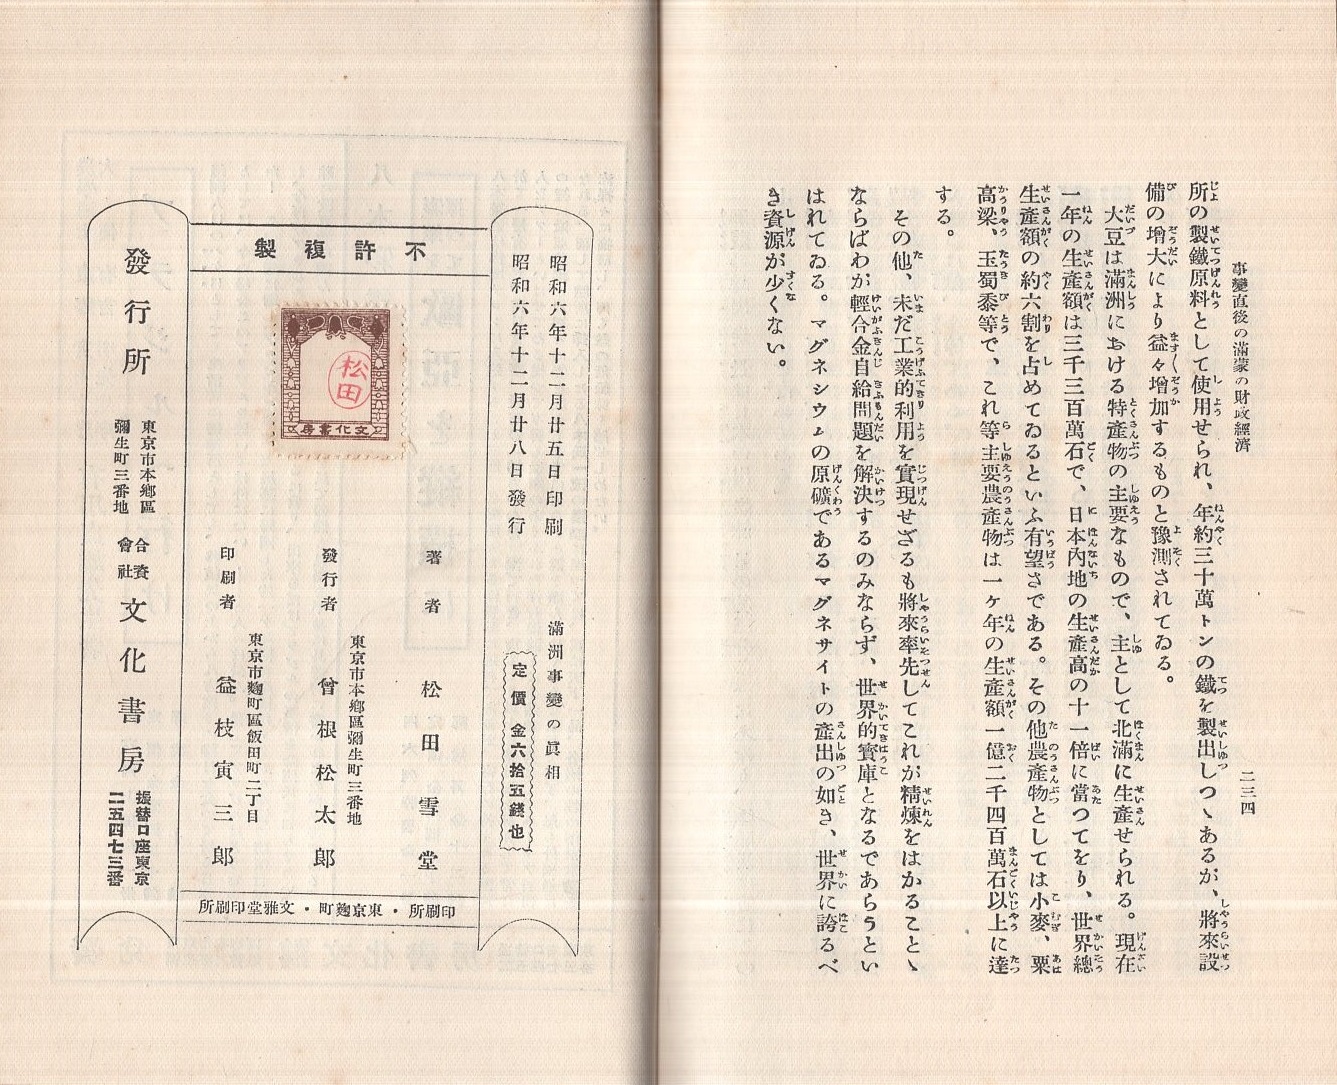 事變直後の滿蒙の財政經濟
二三四
所の製鐵原料として使用せられ、年約三十萬トンの鐵を製出しつゝあるが、將來設
備の增大により益々增加するものと豫測されてゐる。
大豆は滿洲における特產物の主要なもので、主として北滿に生產せられる。現在
一年の生產額は三千三百萬石で、日本內地の生產高の十一倍に當つてをり、世界總
生產額の約六割を占めてゐるといふ有望さである。その他農產物としては小麥、粟
高梁、玉蜀黍等で、これ等主要農產物は一ケ年の生產額一億二千四百萬石以上に達
する。
その他、未だ工業的利用を實現せざるも將來率先してこれが精煉をはかることゝ
ならばわが輕合金自給問題を解決するのみならず、世界的寶庫となるであらうとい
はれてゐる。マグネシウムの原礦であるマグネサイトの產出の如き、世界に誇るべ
き資源が少くない。
昭和六年十二月廿五日印刷
昭和六年十二月廿八日發行
滿洲事變の眞相
定價金六拾五錢也
不許複製
松田
文化書房
著者 松田雪堂
東京市本鄕區彌生町三番地
發行者 曾根松太郎
東京市麴町區飯田町二丁目
印刷者 益枝寅三郎
印刷所・東京麴町・文雅堂印刷所
發行所
東京市本鄕區
彌生町三番地
合資會社 文化書房
振替口座東京
二五四七三番